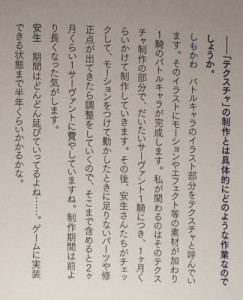 ――「テクスチャ」の制作とは具体的にどのような作業なので
しょうか。
しもかわ　バトルキャラのイラスト部分をテクスチャと呼んでい
ます。そのイラストにモーションやエフェクト等の素材が加わり
1騎のバトルキャラが完成します。私が関わるのはそのテクス
チャ制作の部分で、だいたいサーヴァント1騎につき、1ヶ月く
らいかけて制作していきます。その後、安生さんたちがチェッ
クして、モーションをつけて動かしたときに足りないパーツや修
正点が出てきたら調整をしていくので、そこまで含めると2ヶ
月くらい1サーヴァントに費やしていますね。制作期間は前よ
り長くなった気がします。
安生　期間はどんどん延びていってるよね……。ゲームに実装
できる状態まで半年くらいかかるかな。